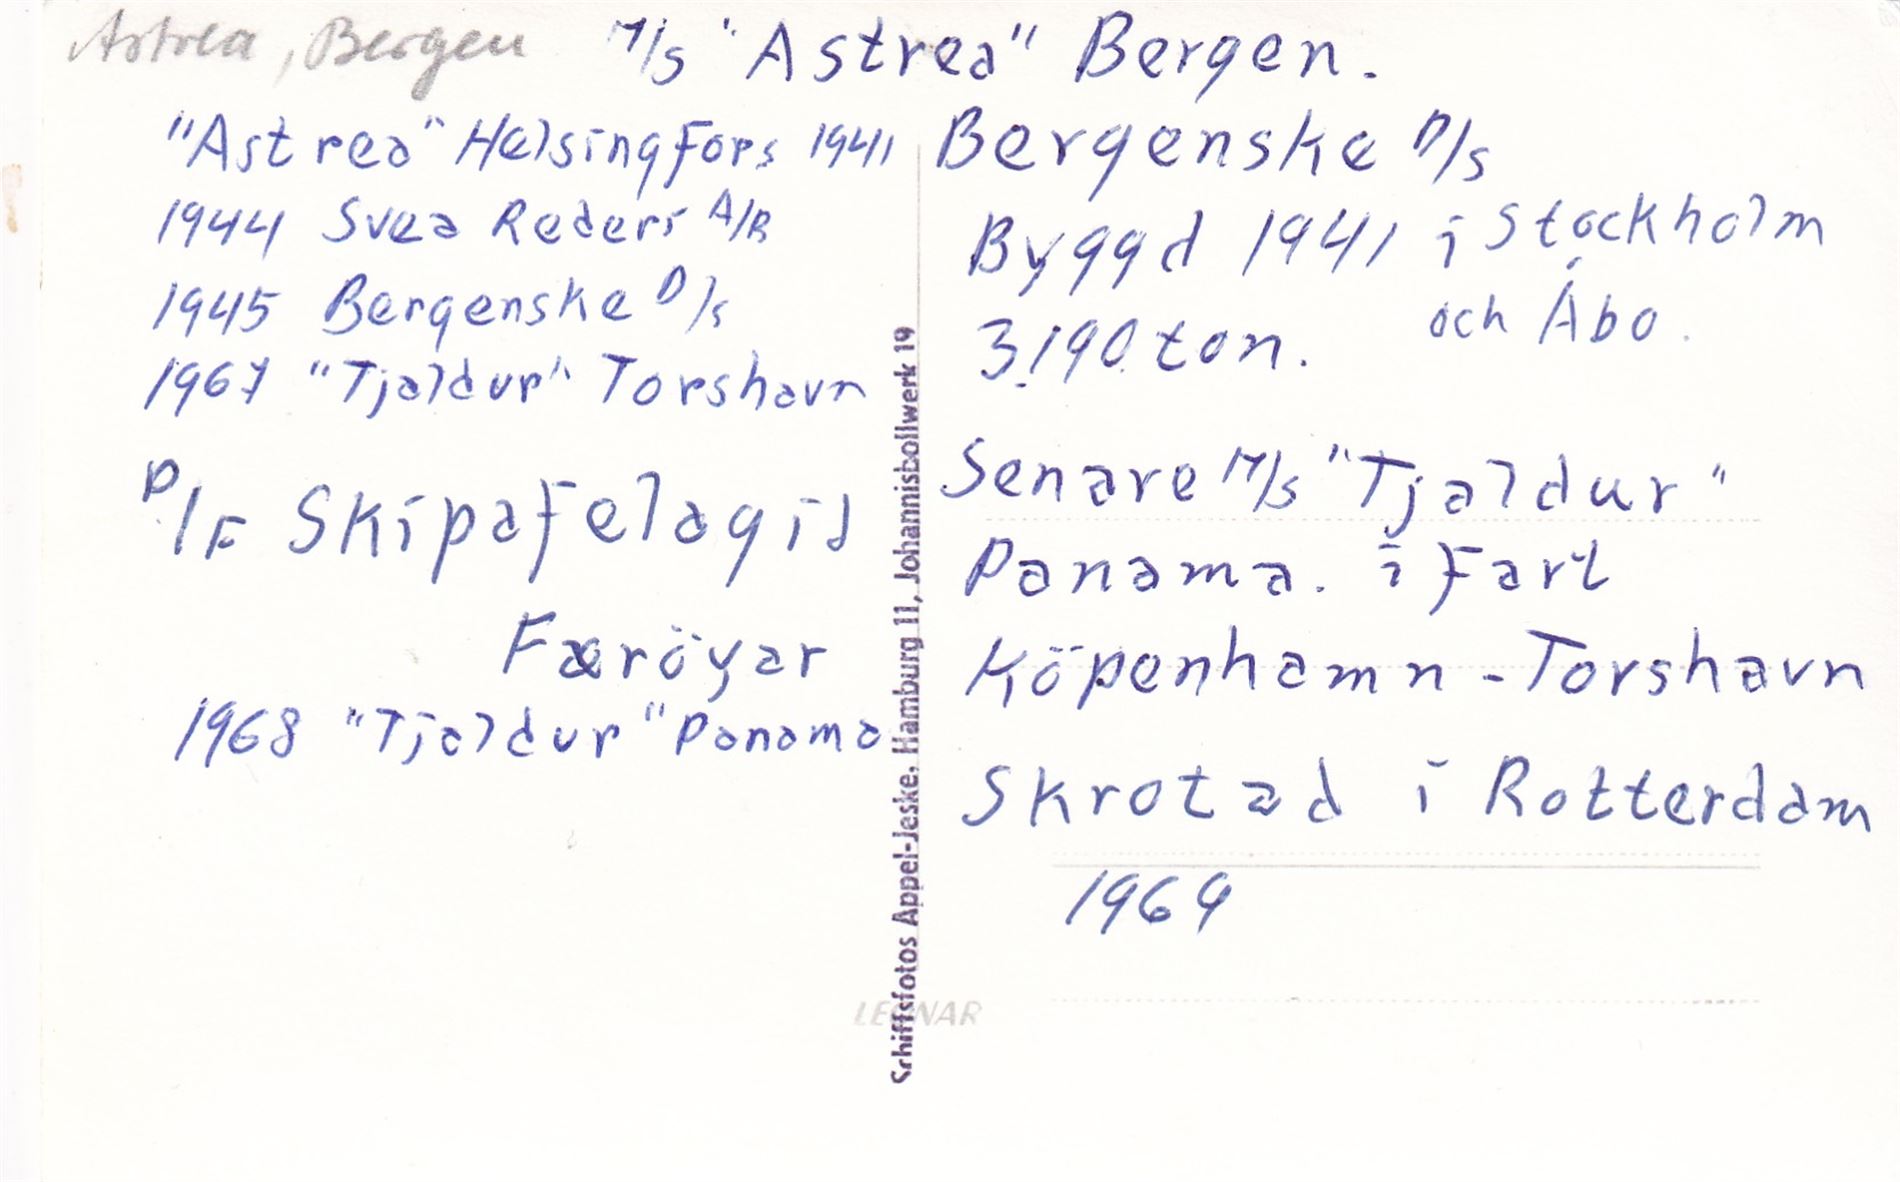 Astrea, Bergen
M/S "Astrea" Bergen.
"Astrea" Helsingfors 1941
1944 Svea Rederi A/B
1945 Bergenske D/s
1967 "Tjaldur" Torshavn
P/F Skipafelagid
Færöyar
1968 "Tjaldur" Panama
Bergenske D/s
Byggd 1941 i Stockholm
och Åbo.
3.190 ton.
Senare M/s "Tjaldur"
Panama. i Fart
Köpenhamn - Torshavn
Skrotad i Rotterdam
1969
Schiffsfotos Appel-Jeske, Hamburg 11, Johannisbollwerk 19
LEONAR